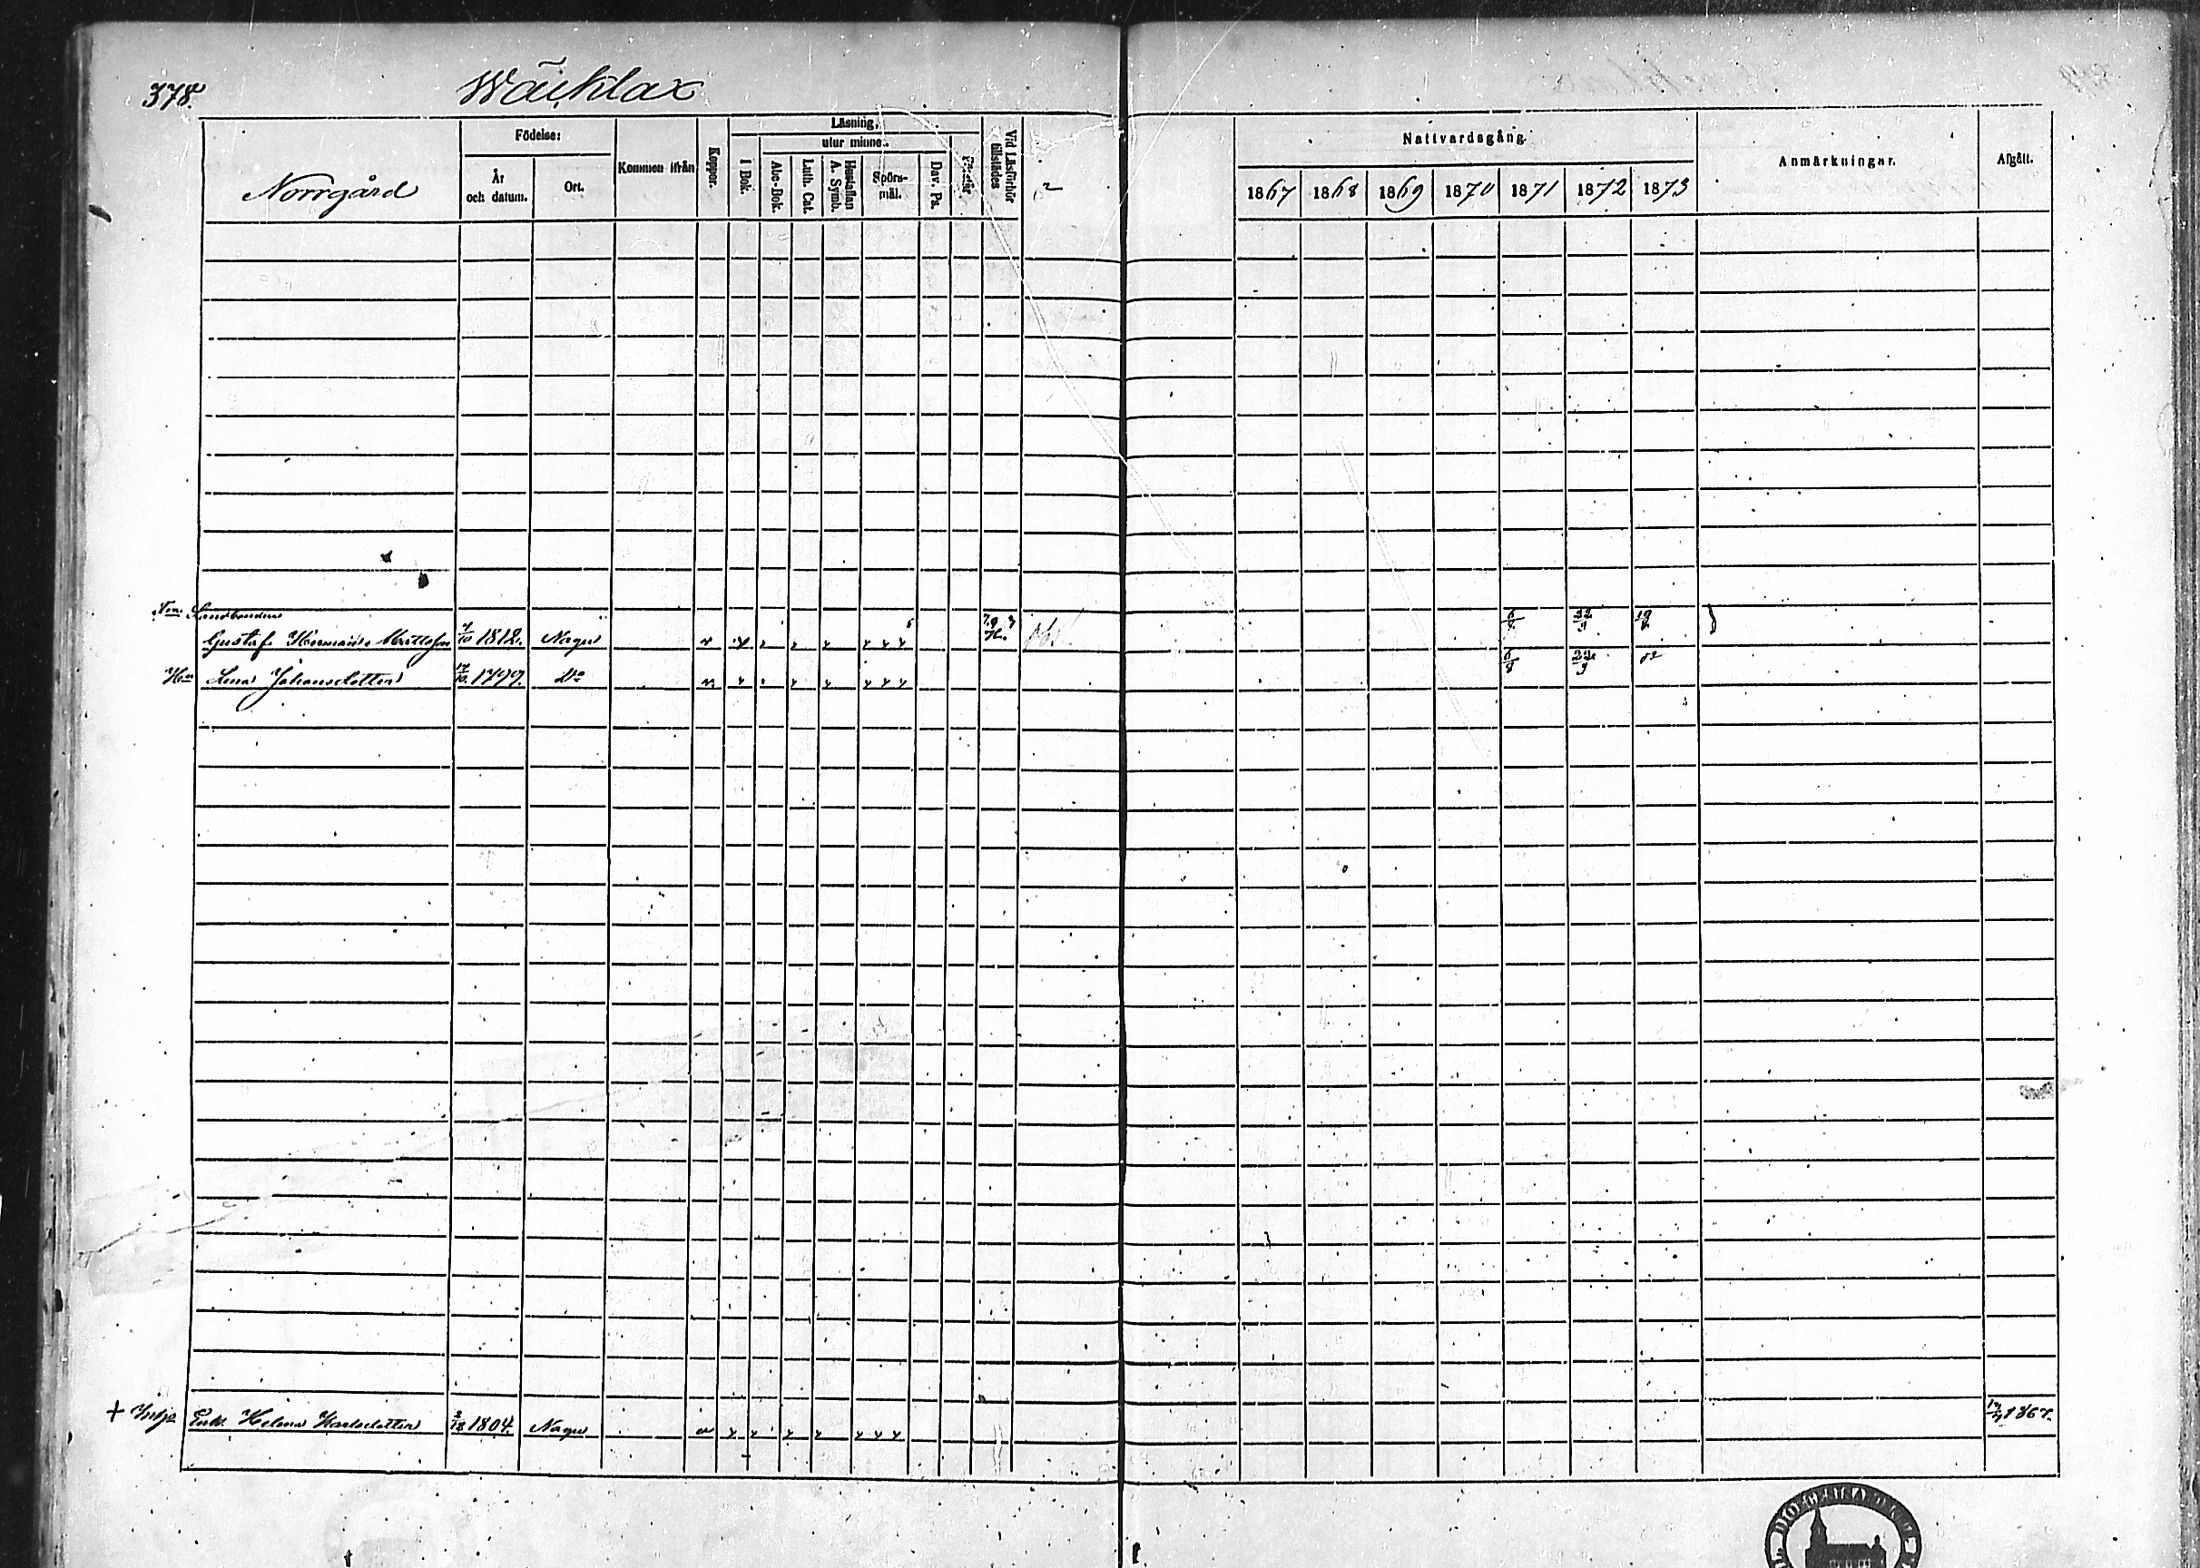 378.
Wäcklax
Norrgård
Födelse:
År och datum.
Ort.
Kommen ifrån
Koppor.
Läsning,
utur minne.
I Bok.
Abc-Bok.
Luth. Cat.
Hustaflan A. Symb.
Spörsmål.
Dav. Ps.
Vid Läsförhör tillstädes
Nattvardsgång.
1867 1868 1869 1870 1871 1872 1873
Anmärkningar.
Afgått.
Landbonden
Gustaf Hermans Mattsson 1812. Nagu
Hu Lena Johansdotter 1799. Do
+ Enk. Helena Karlsdotter 1804. Nagu 1867.